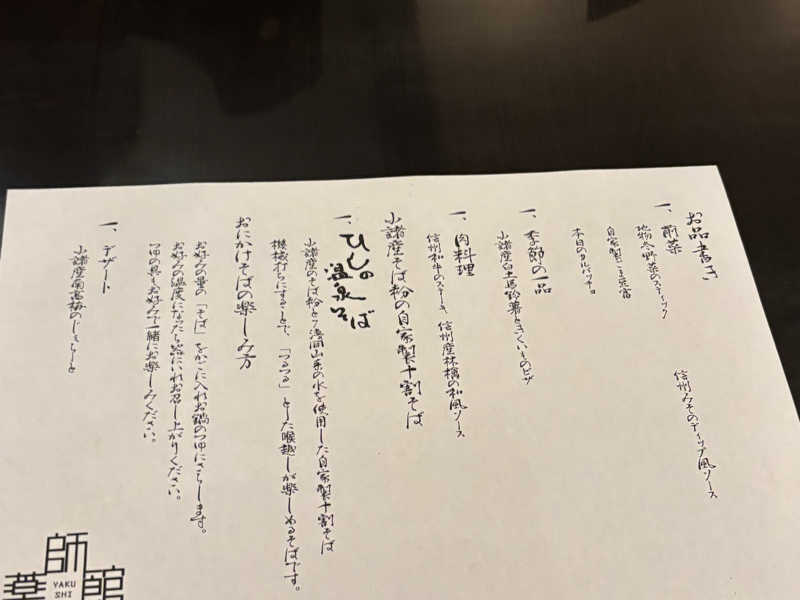 お品書き
一、前菜
地物冬野菜のスティック
信州みそのディップ風ソース
自家製ごま豆富
本日のカルパッチョ
一、季節の一品
小諸産白土馬鈴薯ときくいものピザ
一、肉料理
信州和牛のステーキ 信州産林檎の和風ソース
小諸産そば粉の自家製十割そば
一、ひしの温泉そば
小諸産のそば粉と浅間山系の水を使用した自家製十割そば
機械打ちにすることで、「つるつる」とした喉越しが楽しめるそばです。
おにかけそばの楽しみ方
お好みの量の「そば」をかごに入れお鍋のつゆにさらします。
お好みの温度になったら器にいれお召し上がりください。
つゆの具もお好みで一緒にお楽しみください。
一、デザート
小諸産南高梅のじぇらーと
薬師館
YAKU
SHI